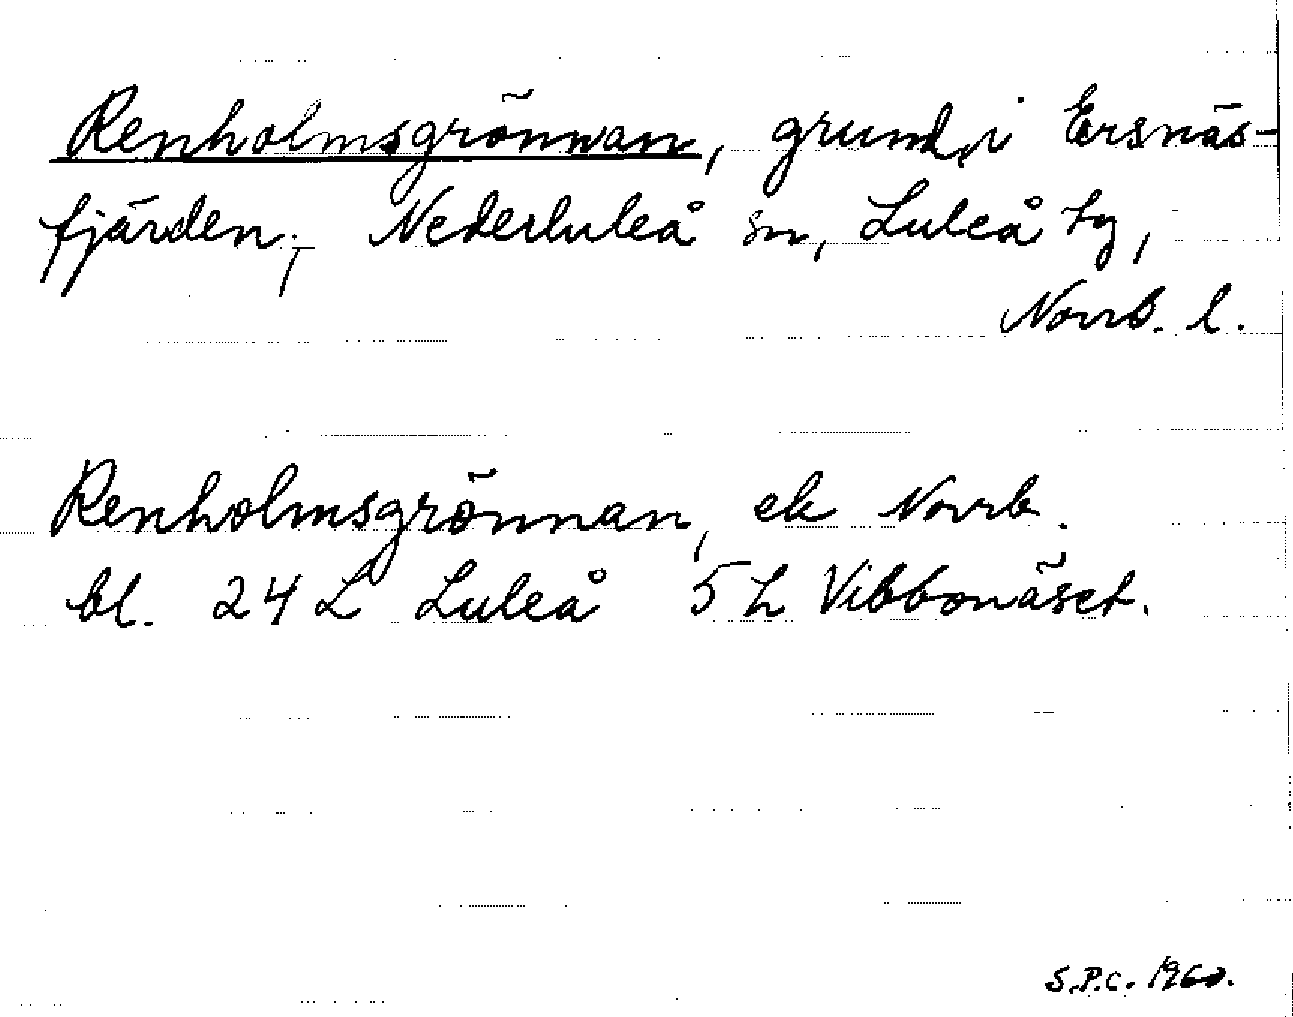 Renholmsgrönnan, grund, i Ersnäs-
fjärden, Nederluleå sn, Luleå tg,
Norrb. l.
Renholmsgrönnan, ek Norrb.
bl. 24 L Luleå 5 h Vibbonäset.
S.P.C. 1960.